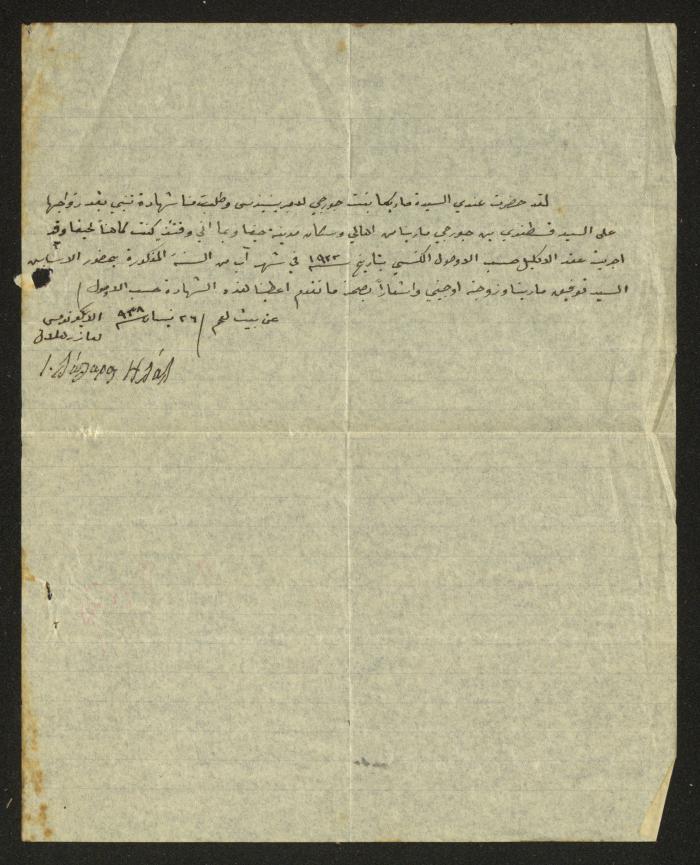 لقد حضرت عندي السيدة ماريكا بنت جورجي وطلبت منا شهادة تنبي بعقد زواجها
على السيد قسطندي بن جورجي مارينا من اهالي وسكان مدينة حيفا وبما اني وقتئذ كنت كاهناً لحيفا وقد
اجريت عقد الاكليل حسب الاصول الكنسي بتاريخ ١٩٢٣ في شهر آب من السنة المذكورة بحضور الاشابين
السيد توفيق مارينا وزوجته اوجيني واشعاراً بصحة ما تقدم اعطينا هذه الشهادة حسب الاصول
عن بيت لحم / ٢٦ نيسان ٩٣٨ الايكونومس
لعازر هلال